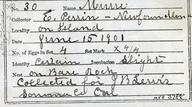 No. 30 Name Murre
Collector E. Perrin - Newfoundland
Locality on Island
Date June 15 1901
No. of Eggs in Set 4 Set Mark X 4/4
Identity Certain Incubation Slight
Nest on Bare Rock
Collected for J. B. Lewis